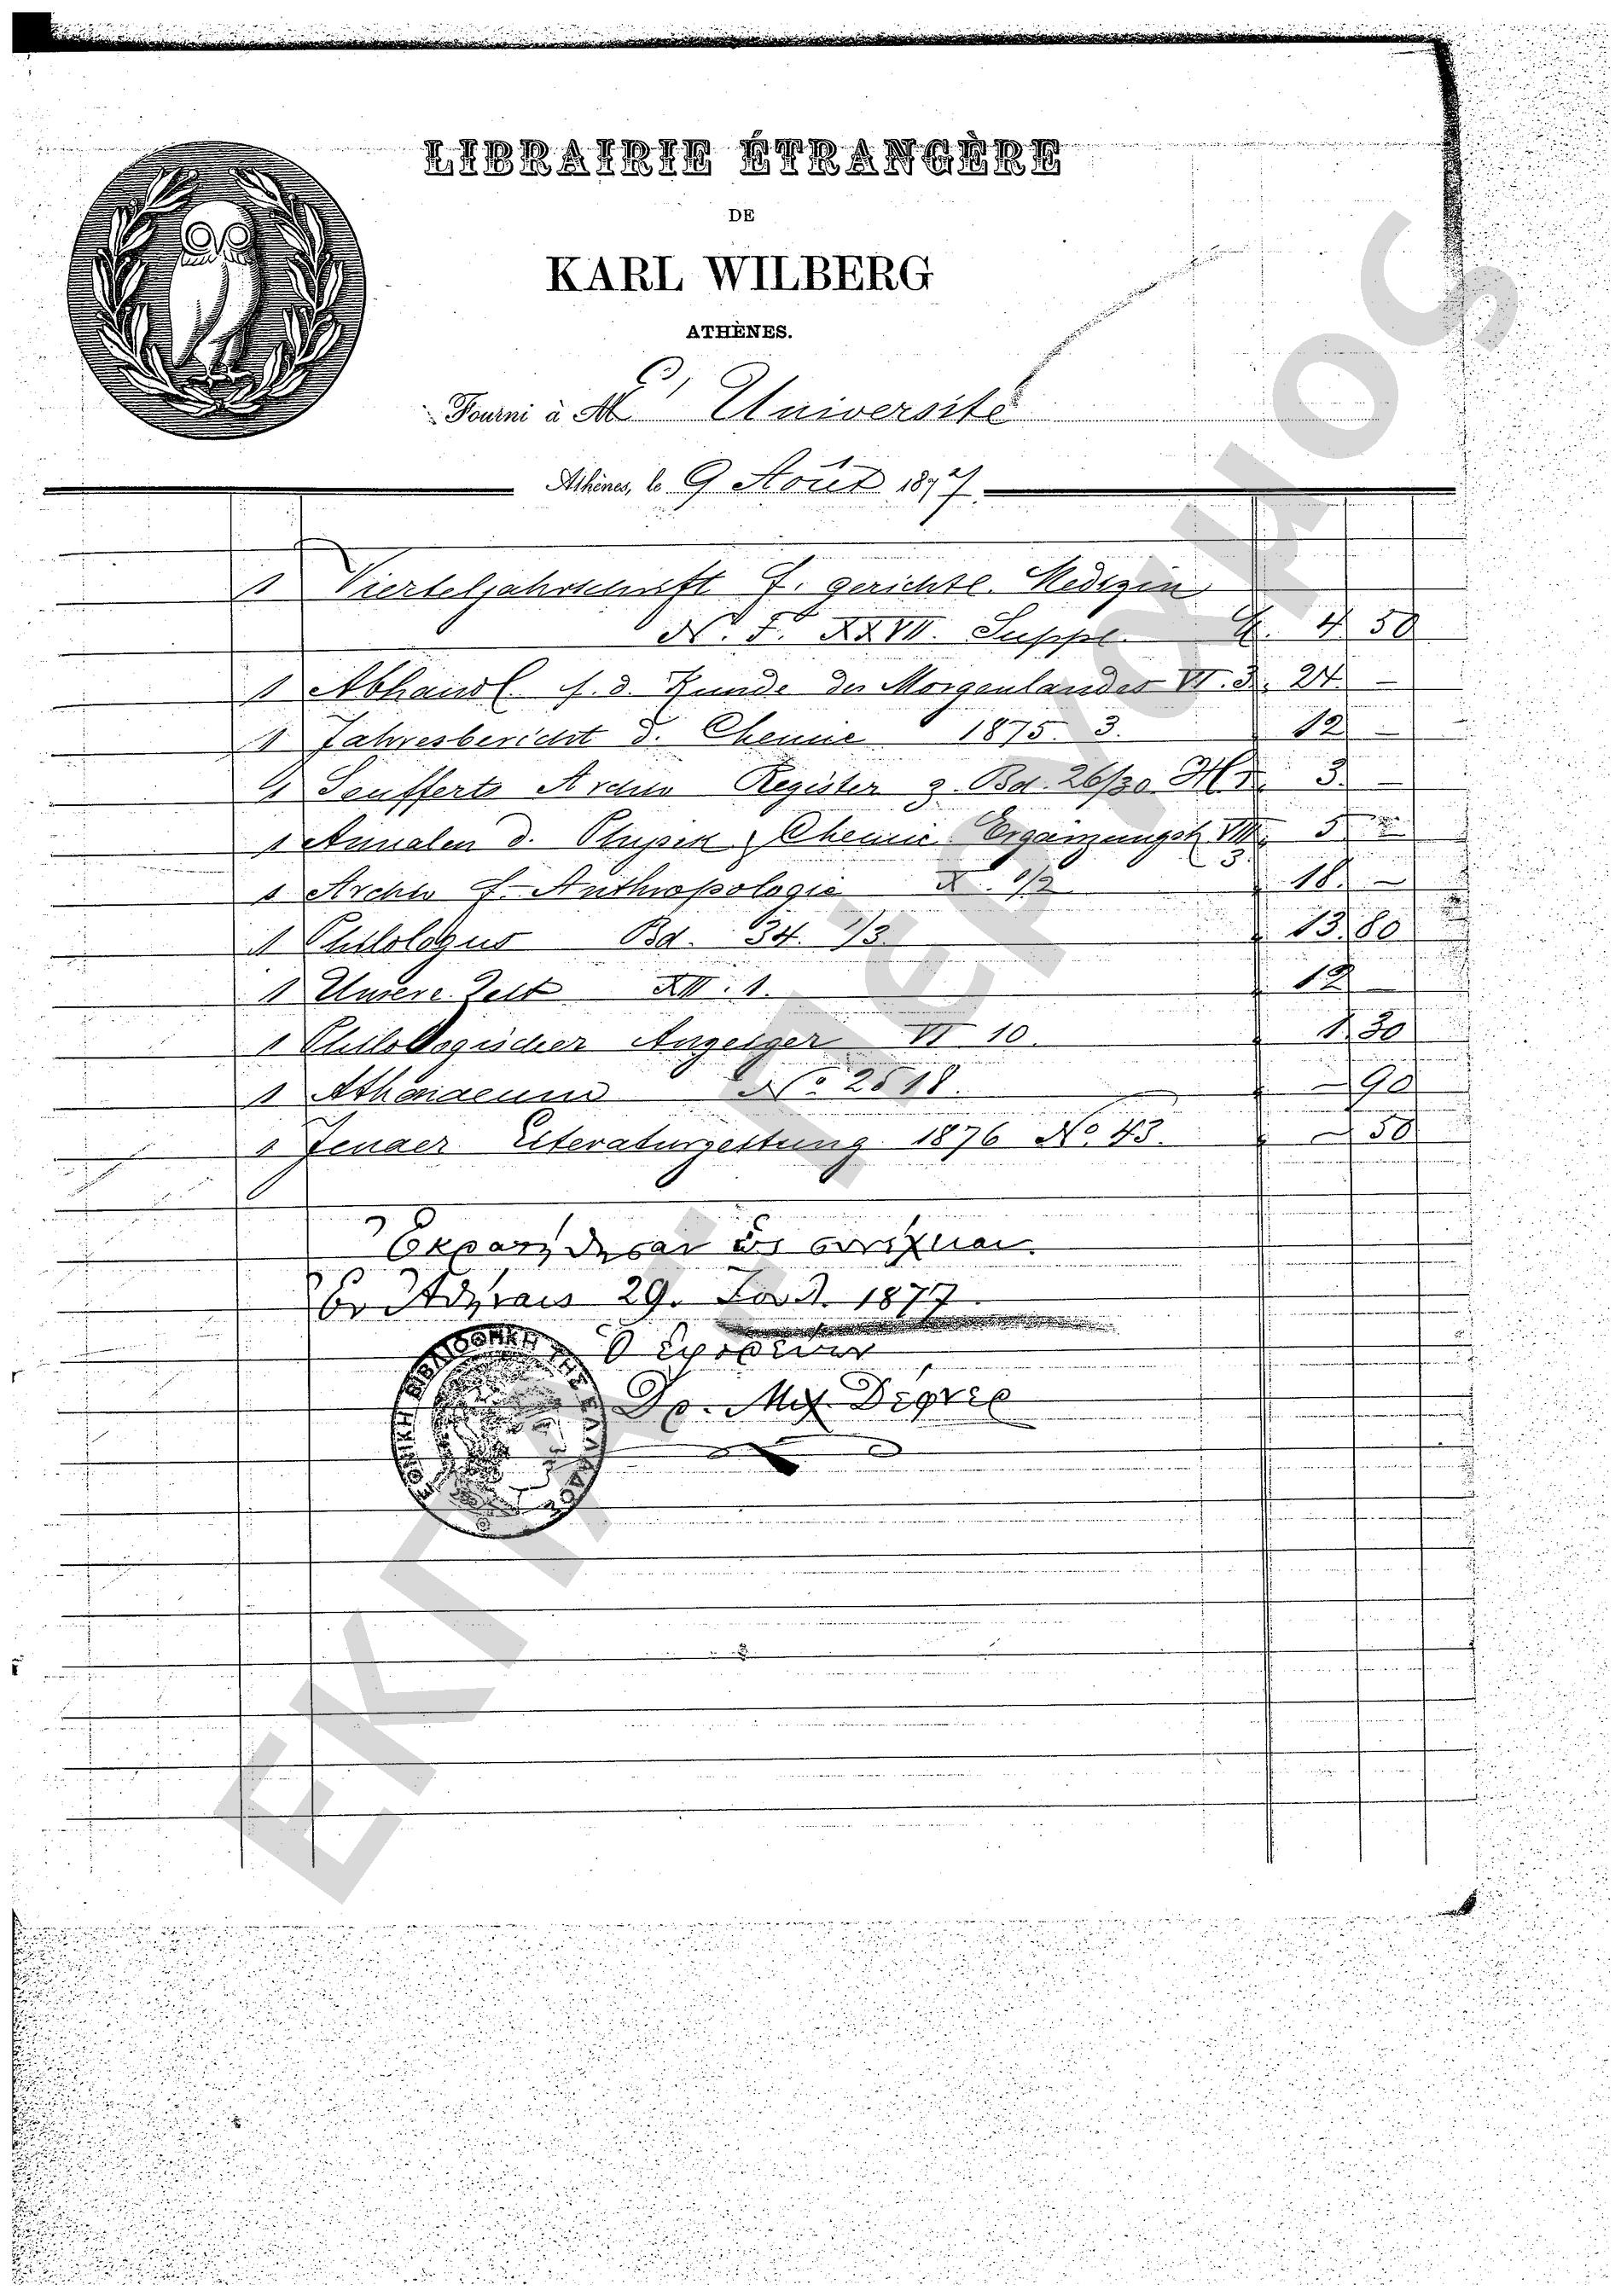 LIBRAIRIE ÉTRANGÈRE
DE
KARL WILBERG
ATHÈNES.
Fourni à M l'Université
Athènes, le 9 Août 1877.
1 Vierteljahrschrift f. gerichtl. Medizin
N. F. XXVII. Suppl. 4 50
1 Abhandl. f. d. Kunde des Morgenlandes VI. 3. 24. —
1 Jahresbericht d. Chemie 1875. 3. 12 —
1 Seufferts Archiv Register z. Bd. 26/30 3. —
1 Annalen d. Physik & Chemie Ergänzungsh. VIII 3. 5
1 Archiv f. Anthropologie X. 1/2 18. —
1 Philologus Bd. 34. 1/3. 13. 80
1 Unsere Zeit XIII. 1. 12 —
1 Philologischer Anzeiger VI 10. 1. 30
1 Athenaeum No 2518. — 90
1 Jenaer Literaturzeitung 1876 No. 43. — 50
Ἐκρατήθησαν ὡς συνέχειαι.
Ἐν Ἀθήναις 29. Ἰουλ. 1877.
Ὁ Ἐφορεύων
Δρ. Μιχ. Δέφνερ
ΕΘΝΙΚΗ ΒΙΒΛΙΟΘΗΚΗ ΤΗΣ ΕΛΛΑΔΟΣ
ΕΚΠΑ - Πέργαμος